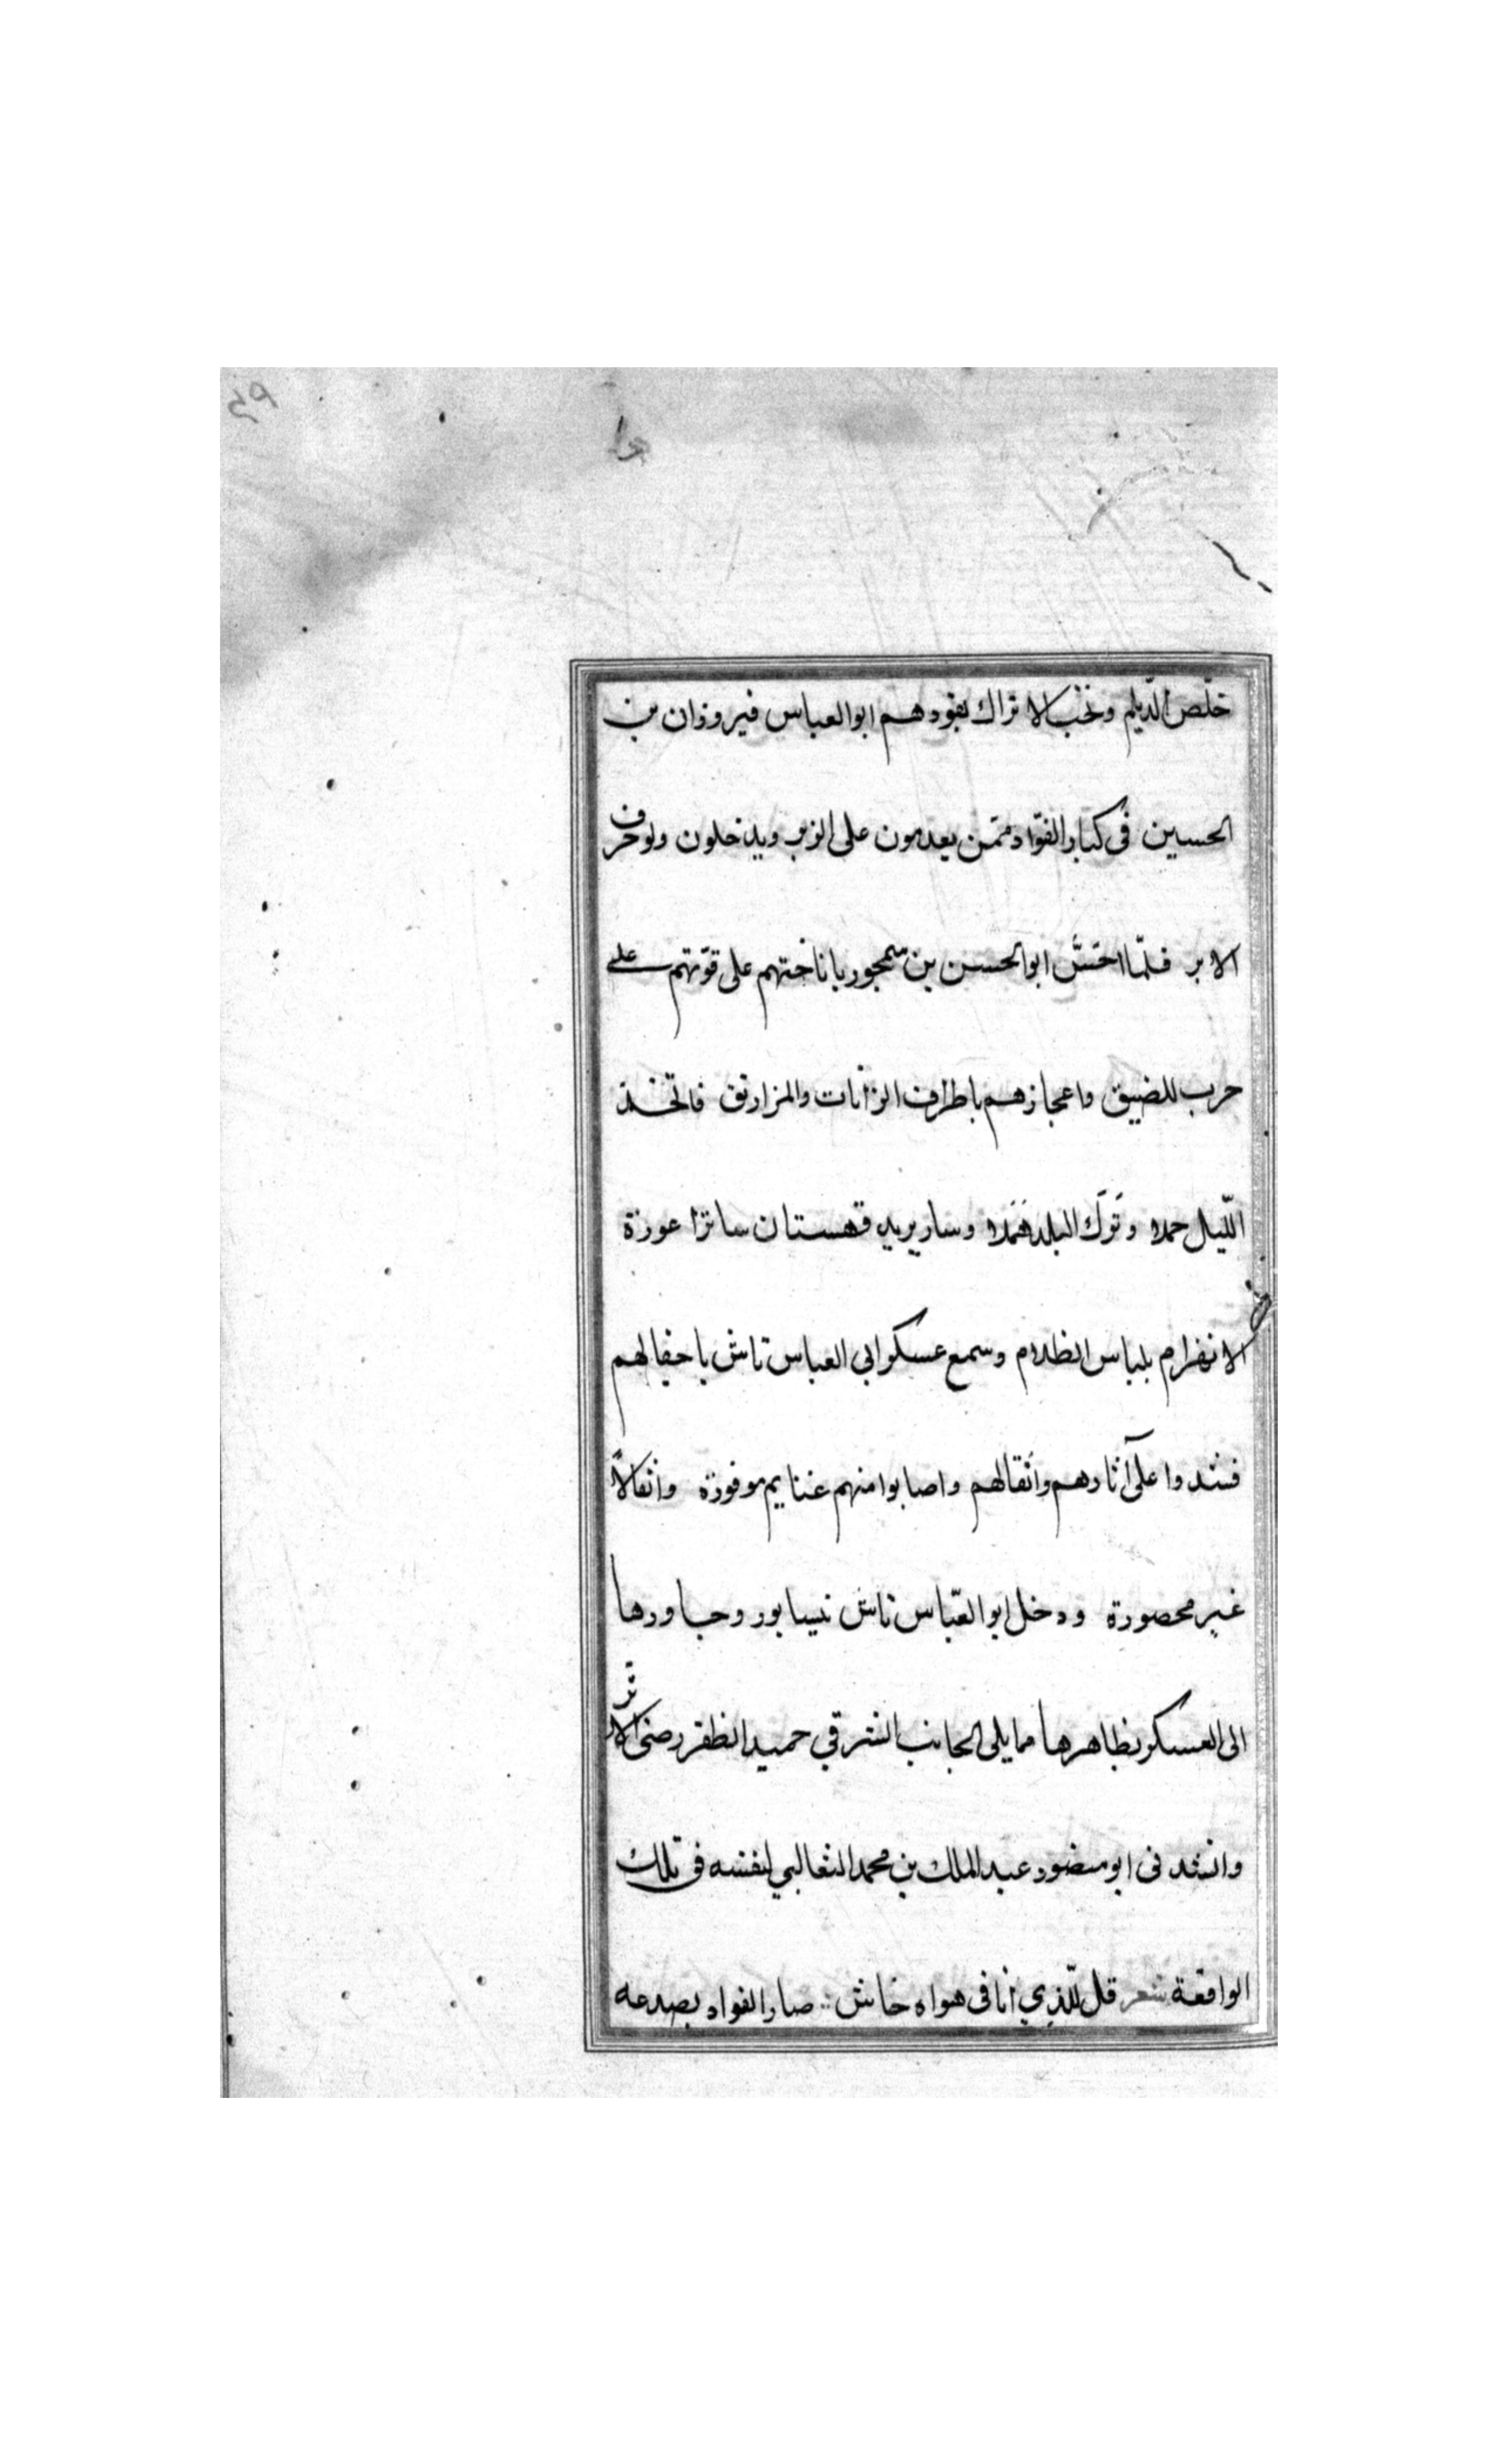 خلّص الدّيلم ونخب الاتراك يقودهم ابو العباس فيروزان بن
الحسين فى كبار القوّاد ممّن يعدمون على الزبر ويدخلون ولو خرق
الابر فلمّا احَسَّ ابو الحسن بن سمجور باناختهم على قوّتهم على
حرب للضيق واعجازهم باطراف الزانات والمزاريق فاتّخذ
اللّيل حملا وتَرَك البلد هَمَلا وسار يريد قهستان ساترا عورة
الانهزام بلباس الظلام وسمع عسكر ابى العباس تاش باجفالهم
فشدوا على آثارهم واثقالهم واصابوا منهم غنايم موفورة وانفالاً
غير محصورة ودخل ابو العبّاس تاش نيسابور وجاورها
الى العسكر بظاهرها مما يلى الجانب الشرقي حميد الظفر رضىّ الاثر
وانشدنى ابو منصور عبد الملك بن محمد الثعالبي لنفسه فى تلك
الواقعة شعر قل للّذي انا فى هواه خاش صار الفواد بصدعه